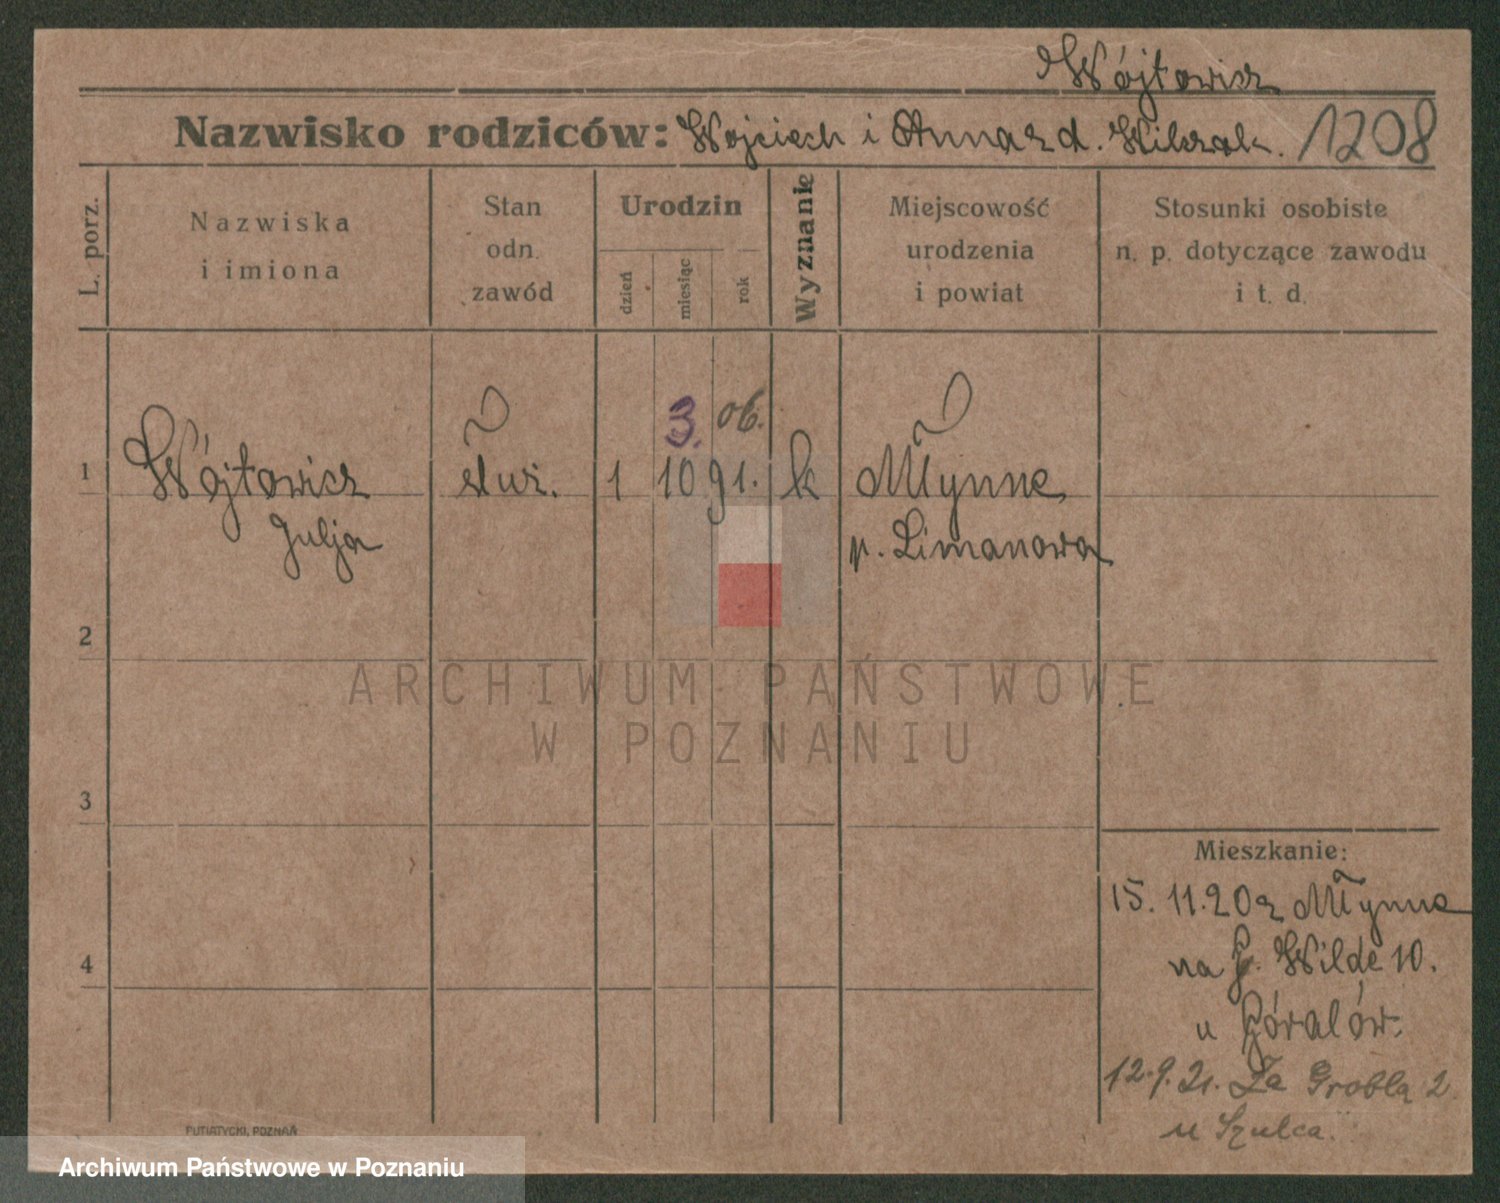 Wójtowicz
Nazwisko rodziców: Wojciech i Anna z d. Wilczak. 1208
L. porz.
Nazwiska i imiona
Stan odn. zawód
Urodzin
dzień
miesiąc
rok
Wyznanie
Miejscowość urodzenia i powiat
Stosunki osobiste n. p. dotyczące zawodu i t. d.
3. 06.
1 Wójtowicz służ. 1 10 91. k Młynne
Julja p. Limanowa
2
ARCHIWUM PAŃSTWOWE
W POZNANIU
3
Mieszkanie:
15. 11. 20 z Młynne
4
na G. Wilde 10.
u Góralów.
12. 9. 21. Za Groblą 2
u Szulca.
PUTIATYCKI, POZNAŃ
Archiwum Państwowe w Poznaniu